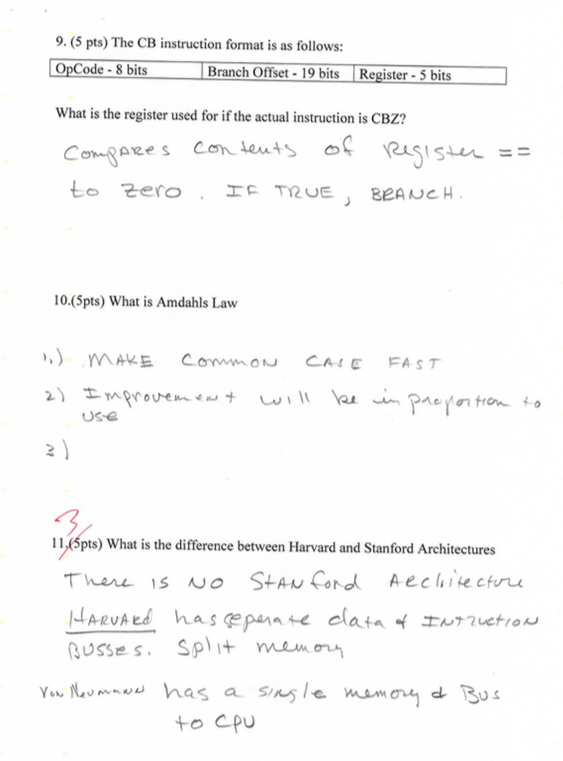 9. (5 pts) The CB instruction format is as follows:
OpCode - 8 bits Branch Offset - 19 bits Register - 5 bits
What is the register used for if the actual instruction is CBZ?
Compares contents of Register ==
to zero. IF TRUE, BRANCH.
10.(5pts) What is Amdahls Law
1.) MAKE COMMON CASE FAST
2) Improvement will be in proportion to
use
3)
3
11.(5pts) What is the difference between Harvard and Stanford Architectures
There is NO Stanford Architecture
HARVARD has seperate data & INTRUCTION
BUSSES. Split memory
Von Neumann has a single memory & Bus
to CPU